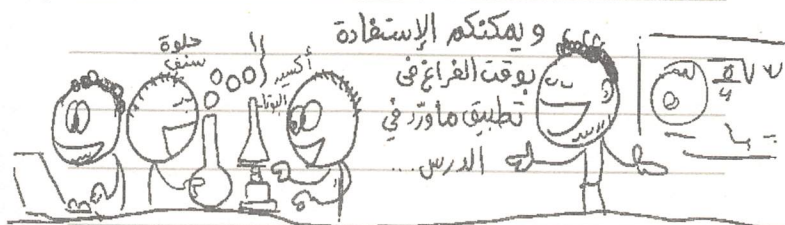 ويمكنكم الإستفادة
بوقت الفراغ في
تطبيق ما ورد في
الدرس...
أكسير
حلوة